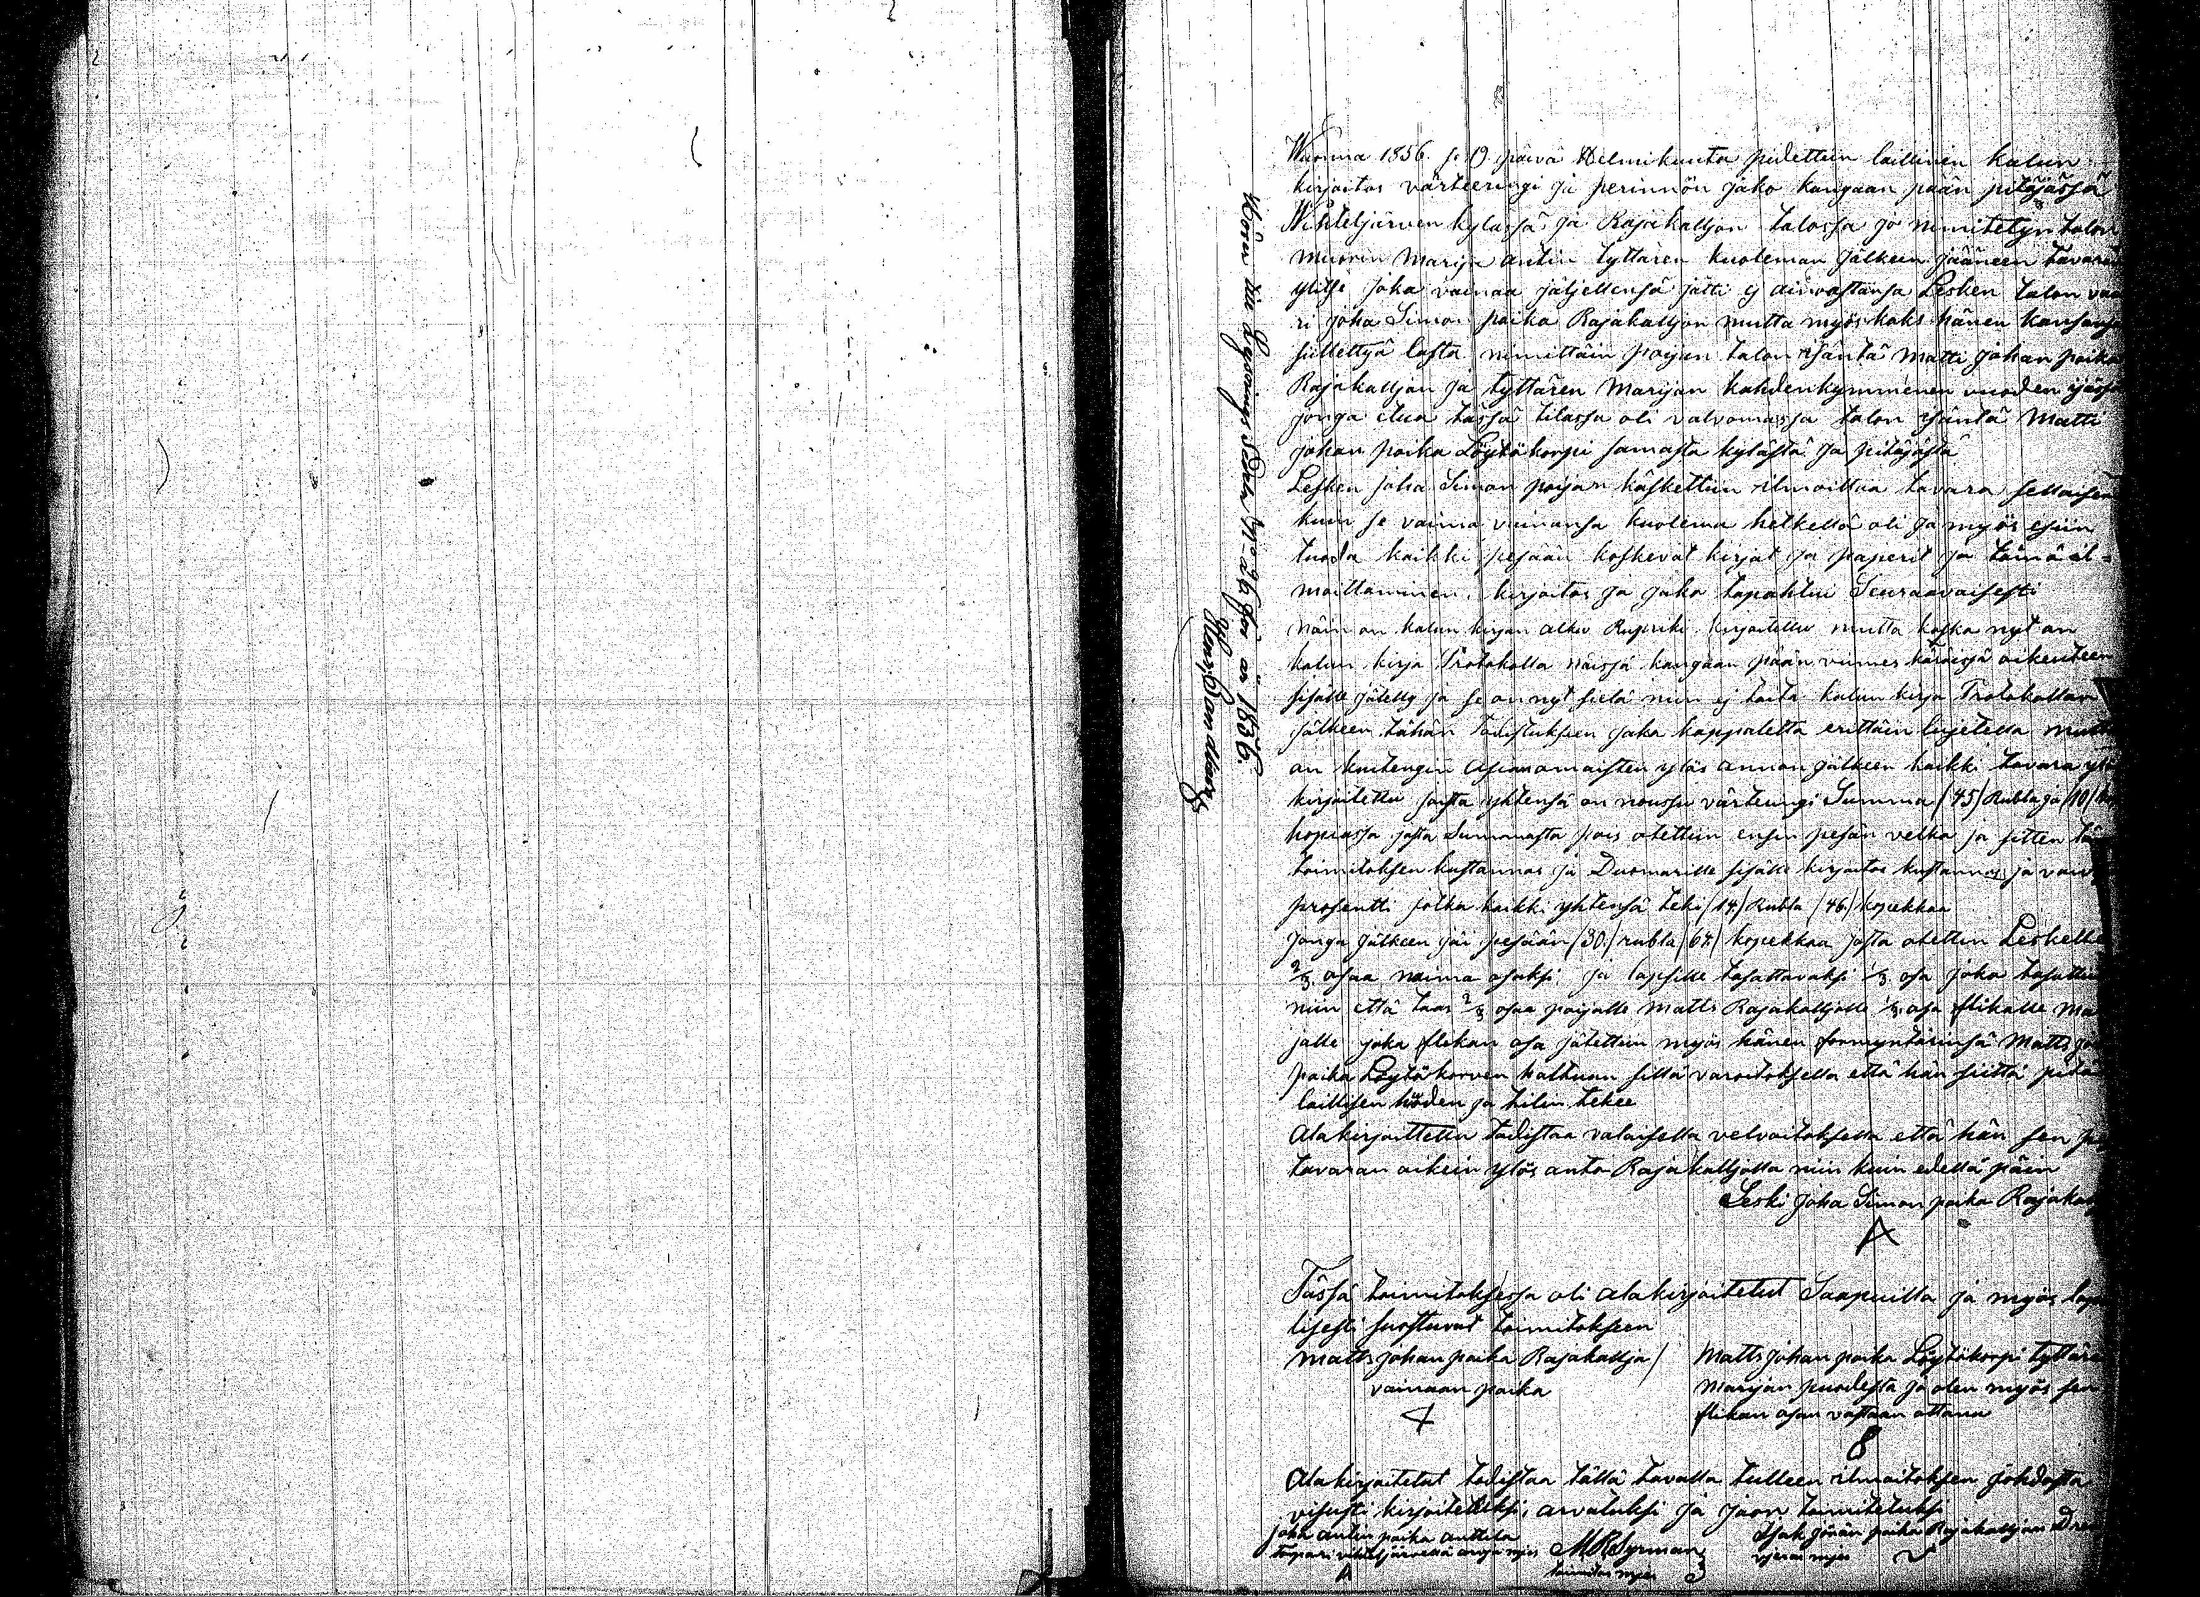 Wuonna 1856 jo 19 päivä Helmikuuta pidettiin laillinen kalun
kirjoitos värteeringi ja perinnön jako kangaan pään pitäjässä
Wihteljärven kylässä ja Rajakalljon talossa jo nimitetyn talon
muorin Marija antin tyttären kuoleman jälkeen jääneen tavaran
ylitse joka vainaa jäljellensä jätti ej ainoastansa Lesken talon vaa
ri joha Simon poika Rajakalljon mutta myös kaks hänen kansansa
siitettyä lasta nimittäin poijan talon isäntä Matti johan poika
Rajakalljon ja tyttären Marijan kahdenkymmenen vuoden ijässä
jonga etua tässä tilassa oli valvomassa talon isäntä Matti
johan poika Löytökorpi samasta kylästä ja pitäjästä
Lesken joha Simon poijan käskettiin ilmoittaa tavara sellaisena
kuin se vaimo vainansa kuolema hetkellä oli ja myös esiin
tuoda kaikki pesään koskevat kirjat ja paperit ja tämä il=
moittaminen, kirjoitos ja jako tapahtui Seuraavaisesti
Näin on kalun kirjan alku Rupriki kirjoitettu mutta koska nyt on
kalun kirja Protokolla näissä kangaan pään viimes käräissä oikeuteen
sisälle jätetty ja se on nyt sielä niin ej taita kalun kirja Protokollan
jälkeen tähän Todistukseen joka kappaletta erittäin lujetella mutta
on kuitengin Asianomaisten ylös annon jälkeen kaikki tavara ylös
kirjoitettu josta yhtensä on noussu värteringi Summa (45) Rubla ja (10) kop
hopiassa josta Summasta pois otettiin ensin pesän velka ja sitten tä
toimitoksen kustannos ja Duomarille sisälle kirjoitos kustannos ja vaiv
prosentti jotka kaikki yhtensä teki (14) Rubla (46) kopekkaa
Jonga jälkeen jäi pesään (30) rubla (64) kopekkaa josta otettiin Leskelle
2/3 osaa naima osaksi ja lapsille tasattavaksi 1/3 osa joka tasattiin
niin että taas 2/3 osaa poijalle Matts Rajakalljolle 1/3 osa flikalle Ma
jalle joka flikan osa jätettiin myös hänen formyntärinsä Matts jo
poika Löytökorven haltuun sillä varoitoksella että hän siittä pitä
laillisen höden ja tilin tekee
Alakirjoitettu todistaa valaisella velvoitoksella että hän sen pe
tavaran oikein ylös anto Rajakalljolla niin kuin edellä päin
Leski Joha Simon poika Rajaka
A
Tässä toimitoksessa oli alakirjoitetut Saapuilla ja myös
lisesti suostuvat toimitokseen
Matts johan poika Rajakallja
vainaan poika
Matts johan poika Löytökorpi tyttäre
Marijan puolesta ja olen myös sen
flikan osan vastaan ottanu
Alakirjoitetut todistaa tällä tavalla tulleen ilmoitoksen johdosta
visusti kirjoitetuksi, arvatuksi ja jaon toimitetuksi
joha antin poika anttila
torpari vihteljärvellä arvjo mjes
A
M R Syrman
toimitos mjes
Isak jonan poika Rajakalljon
Hörer till Lysnings Prot. № 26 för år 1856.